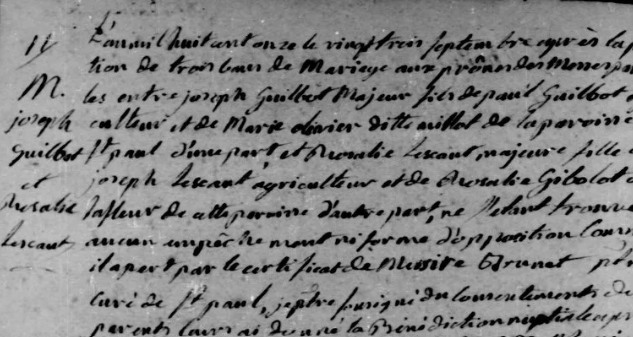 L'an mil huit cent onze le vingt trois septembre après la p
tion de trois bans de Mariage aux prônes des Messes par
M. les entre joseph Guilbot Majeur fils de paul Guilbot
joseph culteur et de Marie olivier ditte millot de la paroisse
Guilbot St paul d'une part, et Rosalie Lescaut majeure fille
et joseph Lescaut agriculteur et de Rosalie Gibolot
Rosalie lafleur de cette paroisse d'autre part, ne s'etant trouvé
Lescaut aucun empêchement ni forme d'opposition Comm
il apert par le certificat de Messire Brunet ptre
curé de St paul, je ptre sousigné du consentements de
parents leurs ai donné la Bénédiction nuptiale apr